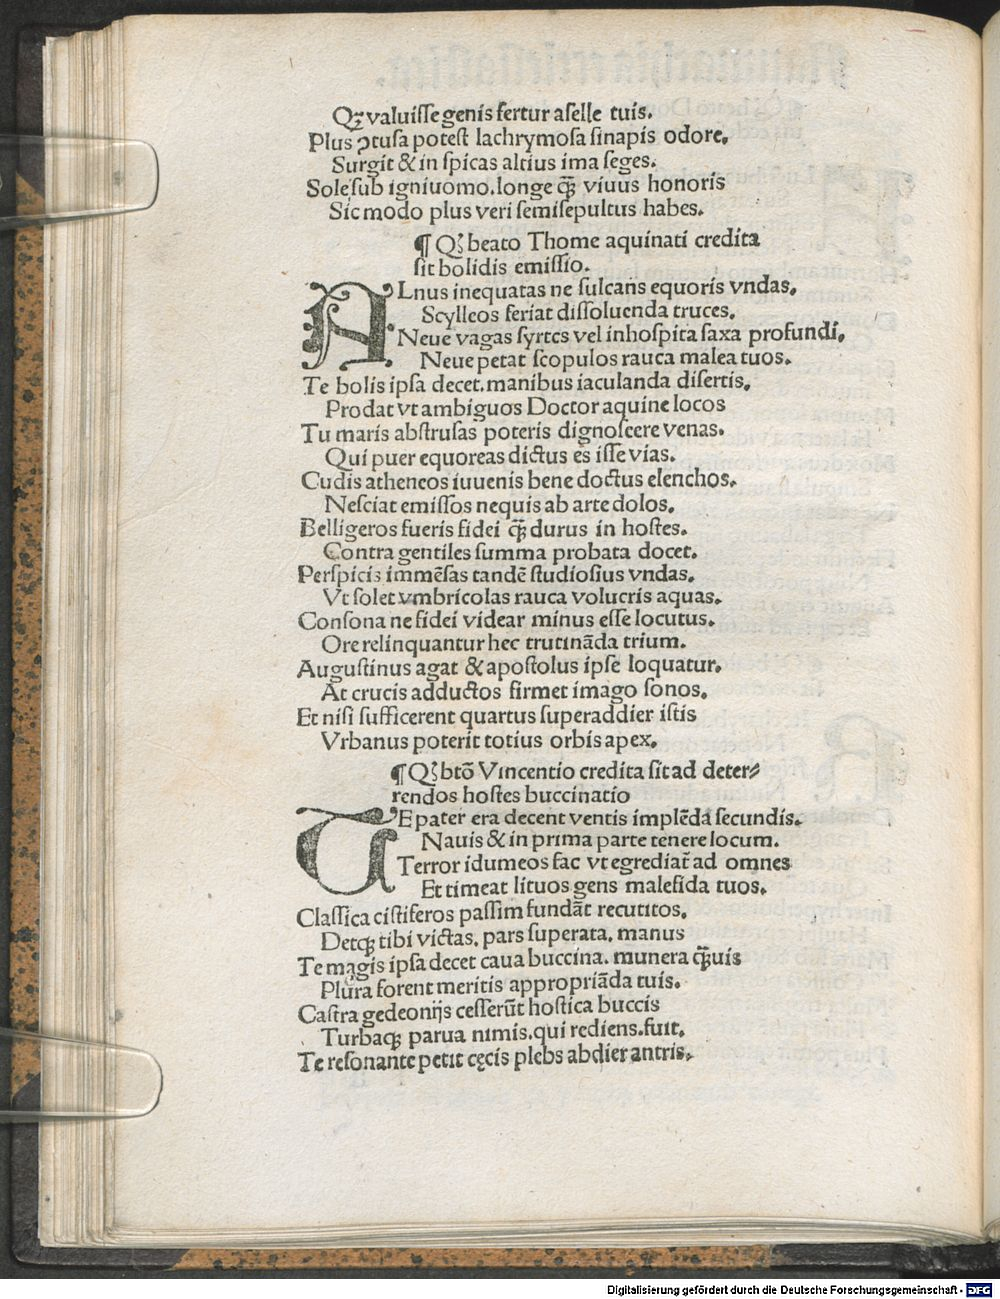 Qꝫ valuisse genis fertur aselle tuis.
Plus ꝯtusa potest lachrymosa sinapis odore.
Surgit & in spicas altius ima seges.
Sole sub igniuomo. longe q̃ꝫ viuus honoris
Sic modo plus veri semisepultus habes.
¶ Qꝫ beato Thome aquinati credita
sit bolidis emissio.
ALnus inequatas ne sulcans equoris vndas.
Scylleos feriat dissoluenda truces.
Neue vagas syrtes vel inhospita saxa profundi.
Neue petat scopulos rauca malea tuos.
Te bolis ipsa decet. manibus iaculanda disertis.
Prodat vt ambiguos Doctor aquine locos
Tu maris abstrusas poteris dignoscere venas.
Qui puer equoreas dictus es isse vias.
Cudis atheneos iuuenis bene doctus elenchos.
Nesciat emissos nequis ab arte dolos.
Belligeros fueris fidei q̃ꝫ durus in hostes.
Contra gentiles summa probata docet.
Perspicis immēsas tandē studiosius vndas.
Vt solet vmbricolas rauca volucris aquas.
Consona ne fidei videar minus esse locutus.
Ore relinquantur hec trutinãda trium.
Augustinus agat & apostolus ipse loquatur.
At crucis adductos firmet imago sonos.
Et nisi sufficerent quartus superaddier istis
Vrbanus poterit totius orbis apex.
¶ Qꝫ btõ Vincentio credita sit ad deter⸗
rendos hostes buccinatio
TE pater era decent ventis implẽda secundis.
Nauis & in prima parte tenere locum.
Terror idumeos fac vt egrediat̃ ad omnes
Et timeat lituos gens malefida tuos.
Classica cistiferos passim fundãt recutitos.
Detqꝫ tibi victas. pars superata. manus
Te magis ipsa decet caua buccina. munera q̃ꝫuis
Plura forent meritis appropriãda tuis.
Castra gedeonijs cesserũt hostica buccis
Turbaqꝫ parua nimis. qui rediens. fuit.
Te resonante petit cęcis plebs abdier antris.
Digitalisierung gefördert durch die Deutsche Forschungsgemeinschaft - DFG